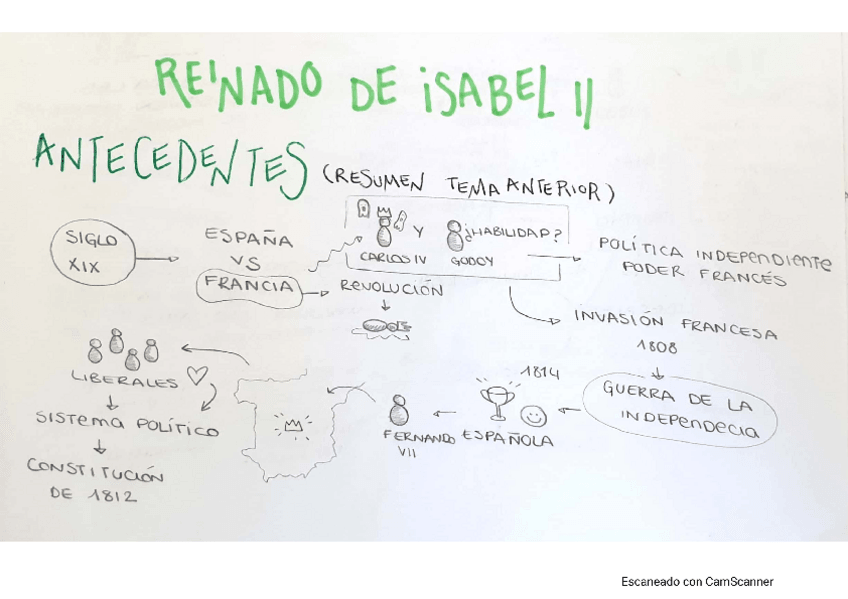 REINADO DE ISABEL II
ANTECEDENTES (RESUMEN TEMA ANTERIOR)
SIGLO
XIX
ESPAÑA
VS
FRANCIA
Y
¿HABILIDAD?
CARLOS IV
GODOY
POLÍTICA INDEPENDIENTE
PODER FRANCÉS
REVOLUCIÓN
INVASIÓN FRANCESA
1808
GUERRA DE LA
INDEPENDECIA
1814
ESPAÑOLA
FERNANDO
VII
LIBERALES
SISTEMA POLÍTICO
CONSTITUCIÓN
DE 1812
Escaneado con CamScanner